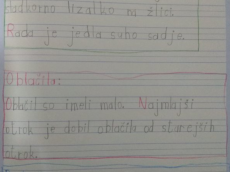 lizalko na žlici.
Rada je jedla suho sadje.
Oblačila:
Oblačil so imeli malo. Najmlajši
otrok je dobil oblačila od starejših
otrok.